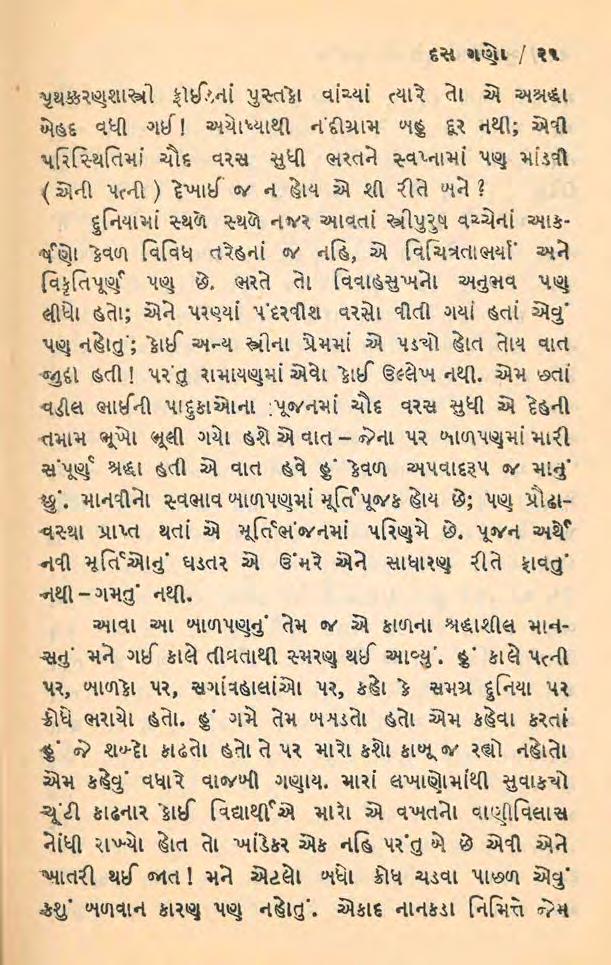 દસ ગણો / ૨૧
પૃથક્કરણશાસ્ત્રી ફ્રોઈડનાં પુસ્તકો વાંચ્યાં ત્યારે તો એ અશ્રદ્ધા
બેહદ વધી ગઈ! અયોધ્યાથી નંદીગ્રામ બહુ દૂર નથી; એવી
પરિસ્થિતિમાં ચૌદ વરસ સુધી ભરતને સ્વપ્નામાં પણ માંડવી
( એની પત્ની ) દેખાઈ જ ન હોય એ શી રીતે બને ?
દુનિયામાં સ્થળે સ્થળે નજર આવતાં સ્ત્રીપુરુષ વચ્ચેનાં આક-
ર્ષણો કેવળ વિવિધ તરેહનાં જ નહિ, એ વિચિત્રતાભર્યાં અને
વિકૃતિપૂર્ણ પણ છે. ભરતે તો વિવાહસુખનો અનુભવ પણ
લીધો હતો; એને પરણ્યાં પંદરવીશ વરસો વીતી ગયાં હતાં એવું
પણ નહોતું; કોઈ અન્ય સ્ત્રીના પ્રેમમાં એ પડ્યો હોત તોય વાત
જુદી હતી! પરંતુ રામાયણમાં એવો કોઈ ઉલ્લેખ નથી. એમ છતાં
વડીલ ભાઈની પાદુકાઓના પૂજનમાં ચૌદ વરસ સુધી એ દેહની
તમામ ભૂખો ભૂલી ગયો હશે એ વાત – જેના પર બાળપણમાં મારી
સંપૂર્ણ શ્રદ્ધા હતી એ વાત હવે હું કેવળ અપવાદરૂપ જ માનું
છું. માનવીનો સ્વભાવ બાળપણમાં મૂર્તિપૂજક હોય છે; પણ પ્રૌઢા-
વસ્થા પ્રાપ્ત થતાં એ મૂર્તિભંજનમાં પરિણમે છે. પૂજન અર્થે
નવી મૂર્તિઓનું ઘડતર એ ઉંમરે એને સાધારણ રીતે ફાવતું
નથી – ગમતું નથી.
આવા આ બાળપણનું તેમ જ એ કાળના શ્રદ્ધાશીલ માન-
સનું મને ગઈ કાલે તીવ્રતાથી સ્મરણ થઈ આવ્યું. હું કાલે પત્ની
પર, બાળકો પર, સગાંવહાલાંઓ પર, કહો કે સમગ્ર દુનિયા પર
ક્રોધે ભરાયો હતો. હું ગમે તેમ બગડતો હતો એમ કહેવા કરતાં
હું જે શબ્દો કાઢતો હતો તે પર મારો કશો કાબૂ જ રહ્યો નહોતો
એમ કહેવું વધારે વાજબી ગણાય. મારાં લખાણોમાંથી સુવાક્યો
ચૂંટી કાઢનાર કોઈ વિદ્યાર્થીએ મારો એ વખતનો વાણીવિલાસ
નોંધી રાખ્યો હોત તો ખાંડેકર એક નહિ પરંતુ બે છે એવી એને
ખાતરી થઈ જાત! મને એટલો બધો ક્રોધ ચડવા પાછળ એવું
કશું બળવાન કારણ પણ નહોતું. એકાદ નાનકડા નિમિત્તે જેમ